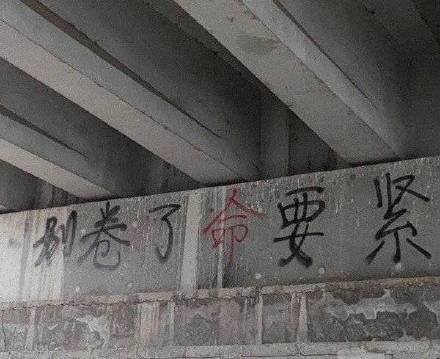 别卷了命要紧